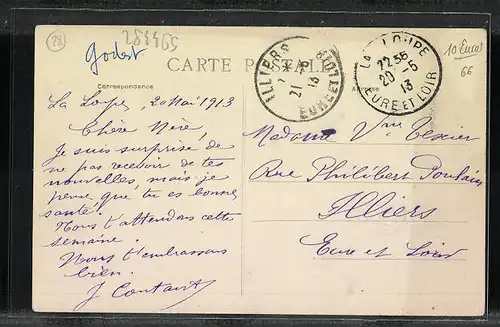 28
284465
Godet
10 Euros
66
CARTE POSTALE
Correspondance
Adresse
ILLIERS
21 -5
13
EURE-ET-LOIR
LA LOUPE
22 35
20 -5
13
EURE ET LOIR
La Loupe, 20 Mai 1913
Chère Mère,
Je suis surprise de
ne pas recevoir de tes
nouvelles, mais je
pense que tu es bonne
santé.
Nous t'attendons cette
semaine.
Nous t'embrassons
bien.
J Contant
Madame Vve Texier
Rue Philibert Poulain
Illiers
Eure et Loir